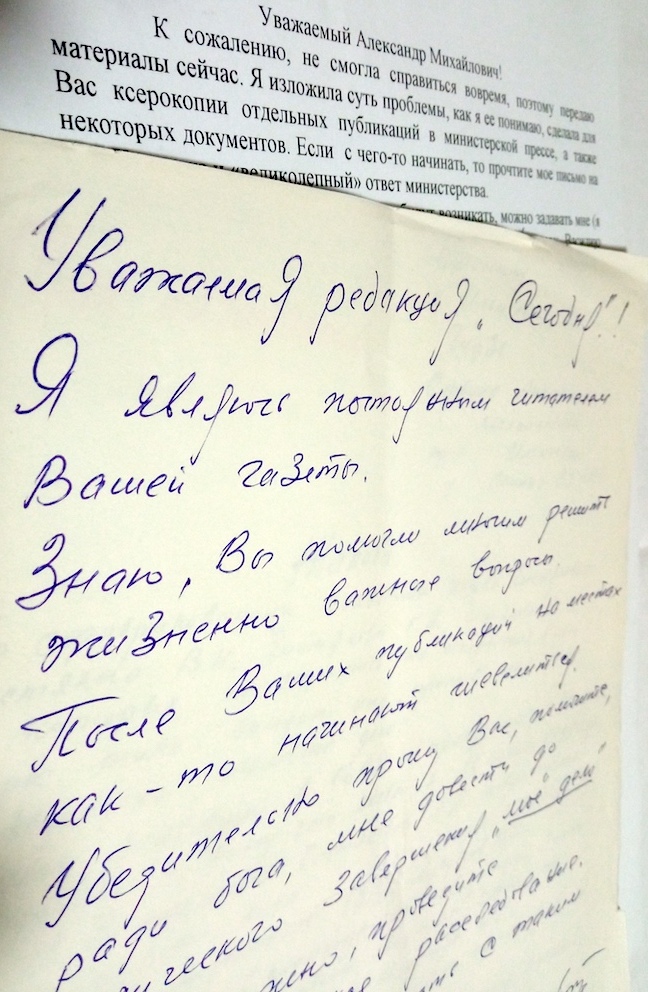 Уважаемый Александр Михайлович!
К сожалению, не смогла справиться вовремя, поэтому передаю
материалы сейчас. Я изложила суть проблемы, как я ее понимаю, сделала для
Вас ксерокопии отдельных публикаций в министерской прессе, а также
некоторых документов. Если с чего-то начинать, то прочтите мое письмо на
и «великолепный» ответ министерства.
возникать, можно задавать мне (я
Уважаемая редакция „Сегодня"!
Я являюсь постоянным читателем
Вашей газеты.
Знаю, Вы помогли многим решить
жизненно важные вопросы.
После Ваших публикаций на местах
как-то начинают шевелиться.
Убедительно прошу Вас, помогите,
ради бога, мне довести до
завершения „мое" дело"
проведите
расследование.
с таким